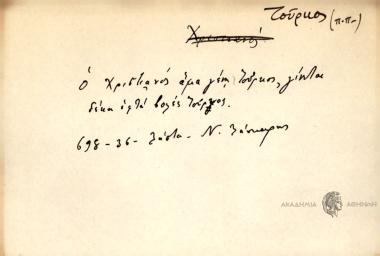 Τούρκος (π.π.)
Χριστιανός
Ὁ Χριστιανός ἅμα γένῃ Τούρκος, γίνεται
δέκα ἑφτά βολές Τούρκος.
698-36- Λάστα- Ν. Λάσκαρης
ΑΚΑΔΗΜΙΑ ΑΘΗΝΩΝ